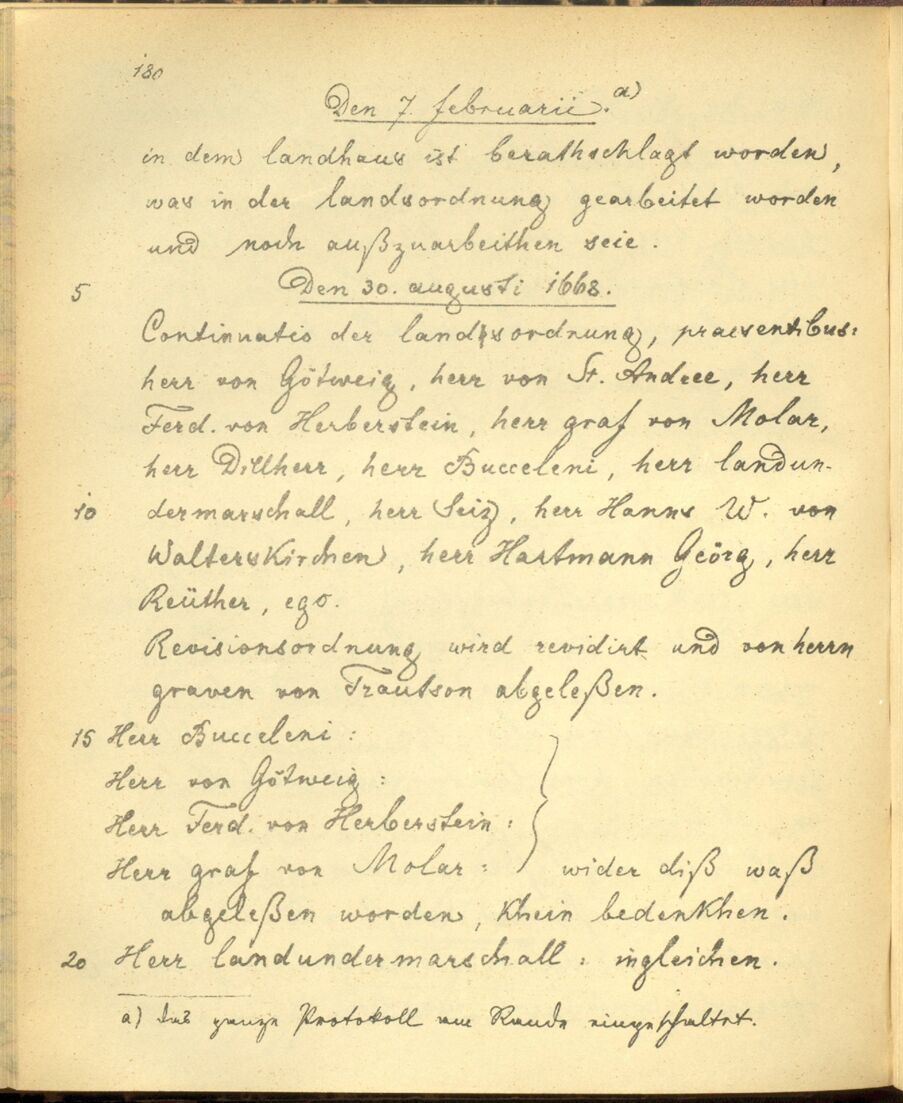 180
Den 7. februarii. a)
in dem landhaus ist berathschlagt worden,
was in der landsordnung gearbeitet worden
und noch außzuarbeithen seie.
5 Den 30. augusti 1668.
Continuatio der landsordnung, praesentibus:
herr von Götweig, herr von St. Andree, herr
Ferd. von Herberstein, herr graf von Molar,
herr Dillherr, herr Bucceleni, herr landun-
10 dermarschall, herr Seiz, herr Hanns W. von
Walterskirchen, herr Hartmann Geörg, herr
Reüther, ego.
Revisionsordnung wird revidirt und von herrn
graven von Trautson abgeleßen.
15 Herr Bucceleni:
Herr von Götweig:
Herr Ferd. von Herberstein:
Herr graf von Molar: } wider diß waß
abgeleßen worden, khein bedenkhen.
20 Herr landundermarschall: ingleichen.
a) das ganze Protokoll am Rande eingeschaltet.